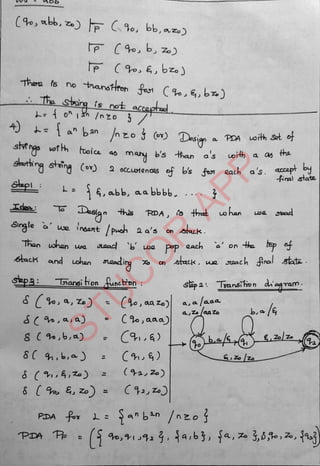 w = abb
(q0, abb, z0) ⊢p (q0, bb, az0)
⊢p (q0, b, z0)
⊢p (q0, ε, bz0)
There is no transition for (q0, ε, bz0)
∴ The string is not accepted.
L = { 0^n 1^2n / n≥0 }
4) L = { a^n b^2n / n≥0 } (or) Design a PDA with set of
strings with twice as many b's than a's with a as the
starting string (or) 2 occurences of b's for each a's. accept by
final state
Step1: L = { ε, abb, aabbbb, ... }
Idea: To Design this PDA, is that when we read
single 'a' we insert / push 2 a's on stack.
Then when we read 'b' we pop each 'a' on the top of
stack and when reading z0 on stack. we reach final state.
Step 2: Transition function: Step 2: Transition diagram.
δ (q0, a, z0) = (q0, aaz0)
δ (q0, a, a) = (q0, aaa)
δ (q0, b, a) = (q1, ε)
δ (q1, b, a) = (q1, ε)
δ (q1, ε, z0) = (q2, z0)
δ (q0, ε, z0) = (q2, z0)
a, a/aaa
a, z0/aaz0
b, a/ε
q0 b, a/ε q1 ε, z0/z0 q2
ε, z0/z0
PDA for L = { a^n b^2n / n≥0 }
PDA P = ({q0, q1, q2}, {a, b}, {a, z0}, δ, q0, z0, {q2})
STUCOR APP